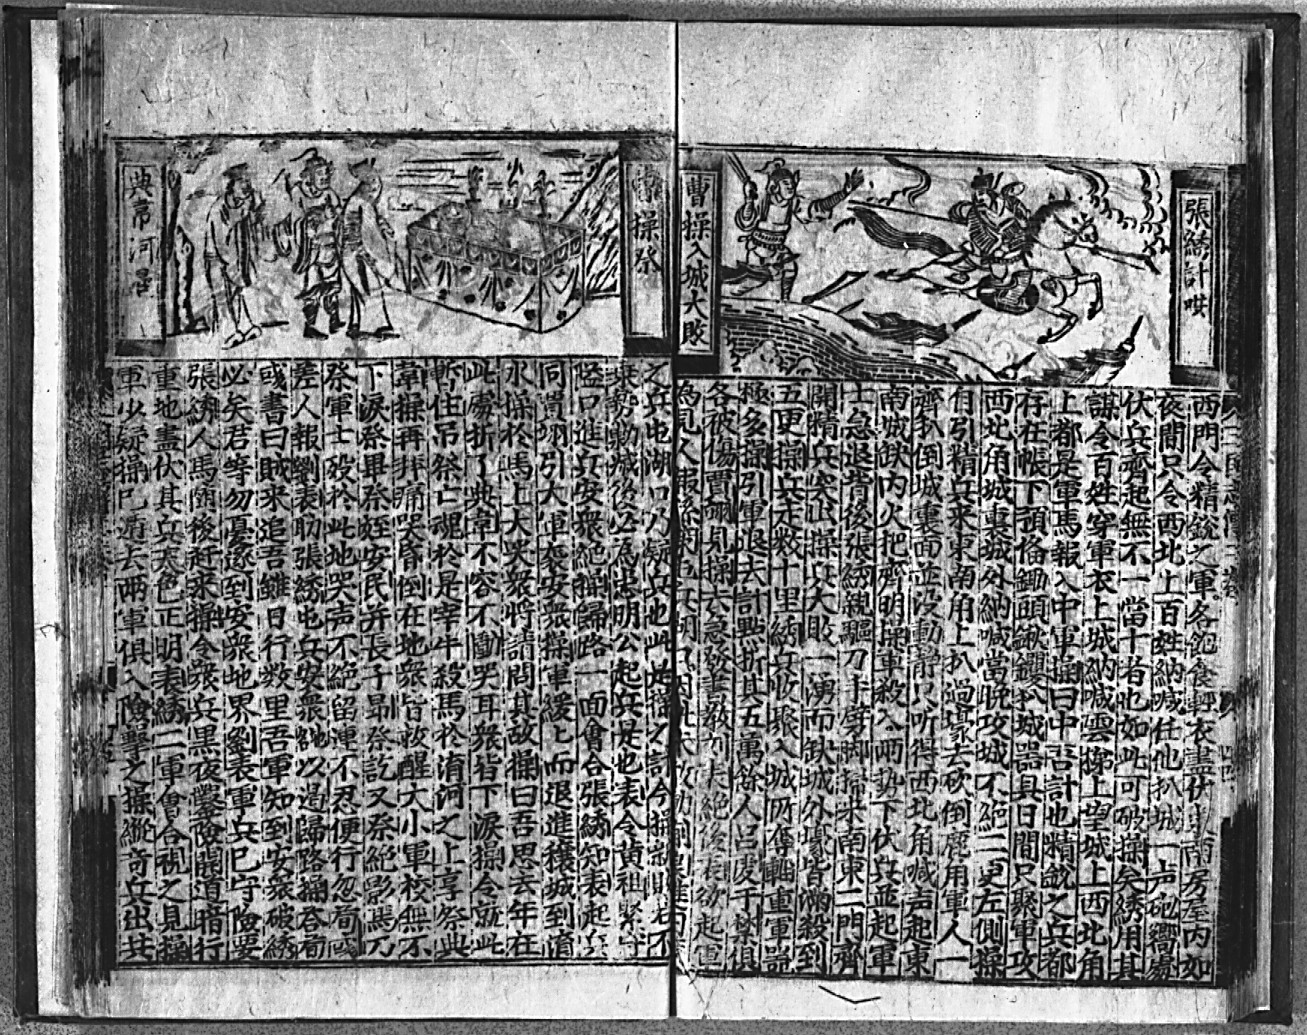 張綉計哄
曹操入城大敗
西門令精銳之軍各飽食輕衣盡伏東南房屋内如
夜間只令西北上百姓納喊任他扒城一声砲嚮處
伏兵齊起無不一當十者也如此可破操矣綉用其
謀令百姓穿軍衣上城納喊雲梯上望城上西北角
上都是軍馬報入中軍操曰中吾計也精銳之兵都
存在帳下預備鋤頭鍬钁扒城器具日間只聚軍攻
西北角城裏城外納喊當晚攻城不絕二更左側操
自引精兵來東南角上扒過壕去砍倒鹿用軍人一
齊扒倒城裏面並没動靜只听得西北角喊声起東
南城缺内火把齊明操軍殺入兩勢下伏兵並起軍
士急退背後張綉親驅刀手劈脚掃來南東二門齊
開精兵突出操兵大敗一湧而缺城外壕皆滿殺到
五更操兵走數十里綉兵收聚入城所得輜重軍器
極多操引軍退去計點折其五萬餘人吕虔于禁俱
各被傷賈詡見操去急發書教刘表絕後表欲起軍
曹操祭
典韋河邑
之兵屯湖口乃疑兵也此是操之計今操新敗若不
乗勢勦滅後必為患明公起兵是也表令黄祖緊守
隘口進兵安衆絕操歸路一面會合張綉知表起兵
同賈詡引大軍襲安衆操軍緩上而退進穰城到淯
水操於馬上大哭衆將請問其故操曰吾思去年在
此處折了典韋不容不慟哭耳衆皆下淚操令就此
暫住吊祭亡魂於是宰牛殺馬於淯河之上享祭典
韋操再拜痛哭昏倒在地衆皆救醒大小軍校無不
下淚祭畢祭姪安民并長子昂祭訖又祭絕影馬凡
祭軍士殁於此地哭声不絕留連不忍便行忽荀彧
差人報劉表助張綉屯兵安衆欲以遏歸路操答荀
彧書曰賊來追吾雖日行数里吾軍知到安衆破綉
必矣君等勿憂遂到安衆地界劉表軍兵已守險要
張綉人馬随後赶來操令衆兵黒夜鑿險開道暗行
重地盡伏其兵天色正明表綉二軍會合視之見操
軍少疑操已遁去两軍俱入險擊之操縱奇兵出其